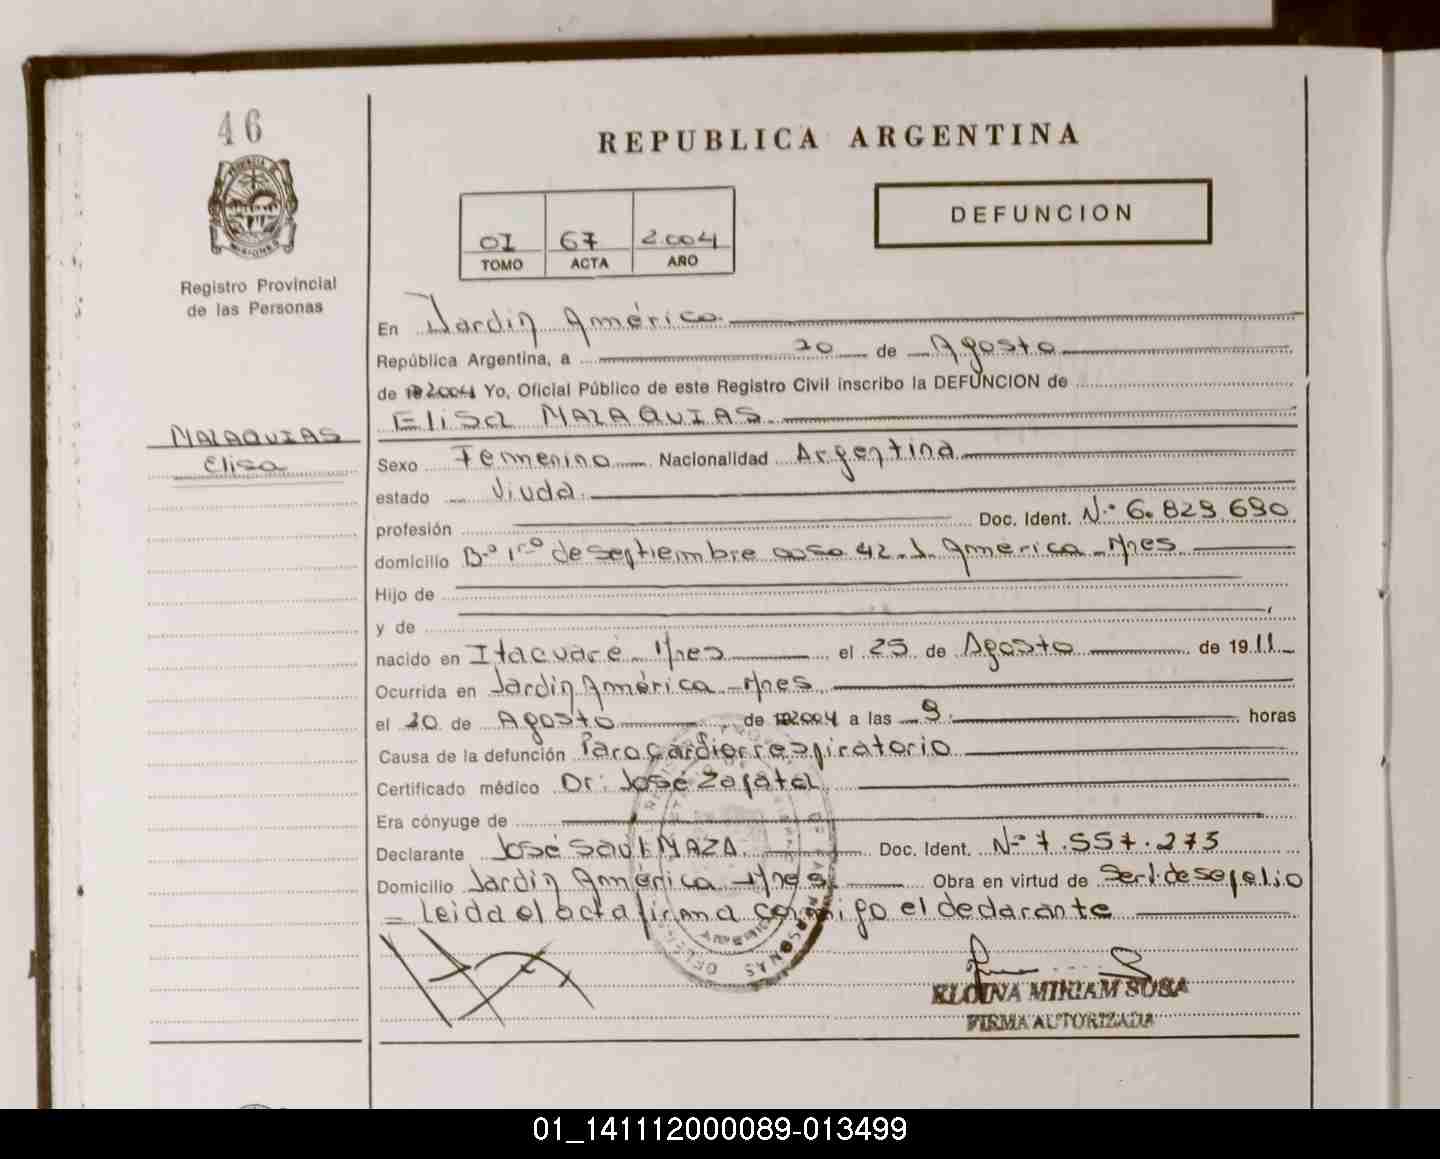 46
REPUBLICA ARGENTINA
DEFUNCION
01 67 2.004
TOMO ACTA AÑO
Registro Provincial
de las Personas
En Jardín América.
República Argentina, a 20 de Agosto
de 2004 Yo, Oficial Público de este Registro Civil inscribo la DEFUNCION de
Elisa MALAQUIAS.
MALAQUIAS
Elisa
Sexo Femenino Nacionalidad Argentina
estado Viuda.
profesión Doc. Ident. N° 6.829.690
domicilio B° 1ro de septiembre casa 42. J. América - Mnes
Hijo de
y de
nacido en Itacuaré - Mnes el 25 de Agosto de 1911
Ocurrida en Jardín América - Mnes.
el 20 de Agosto de 2004 a las 9. horas
Causa de la defunción Paro cardiorrespiratorio
Certificado médico Dr: José Zapata.
Era cónyuge de
Declarante José Saul MAZA. Doc. Ident. N° 7.557.273
Domicilio Jardín América - Mnes. Obra en virtud de Serv. de sepelio
= Leida el acta firma conmigo el declarante
ELOINA MIRIAM SOSA
FIRMA AUTORIZADA
01_141112000089-013499